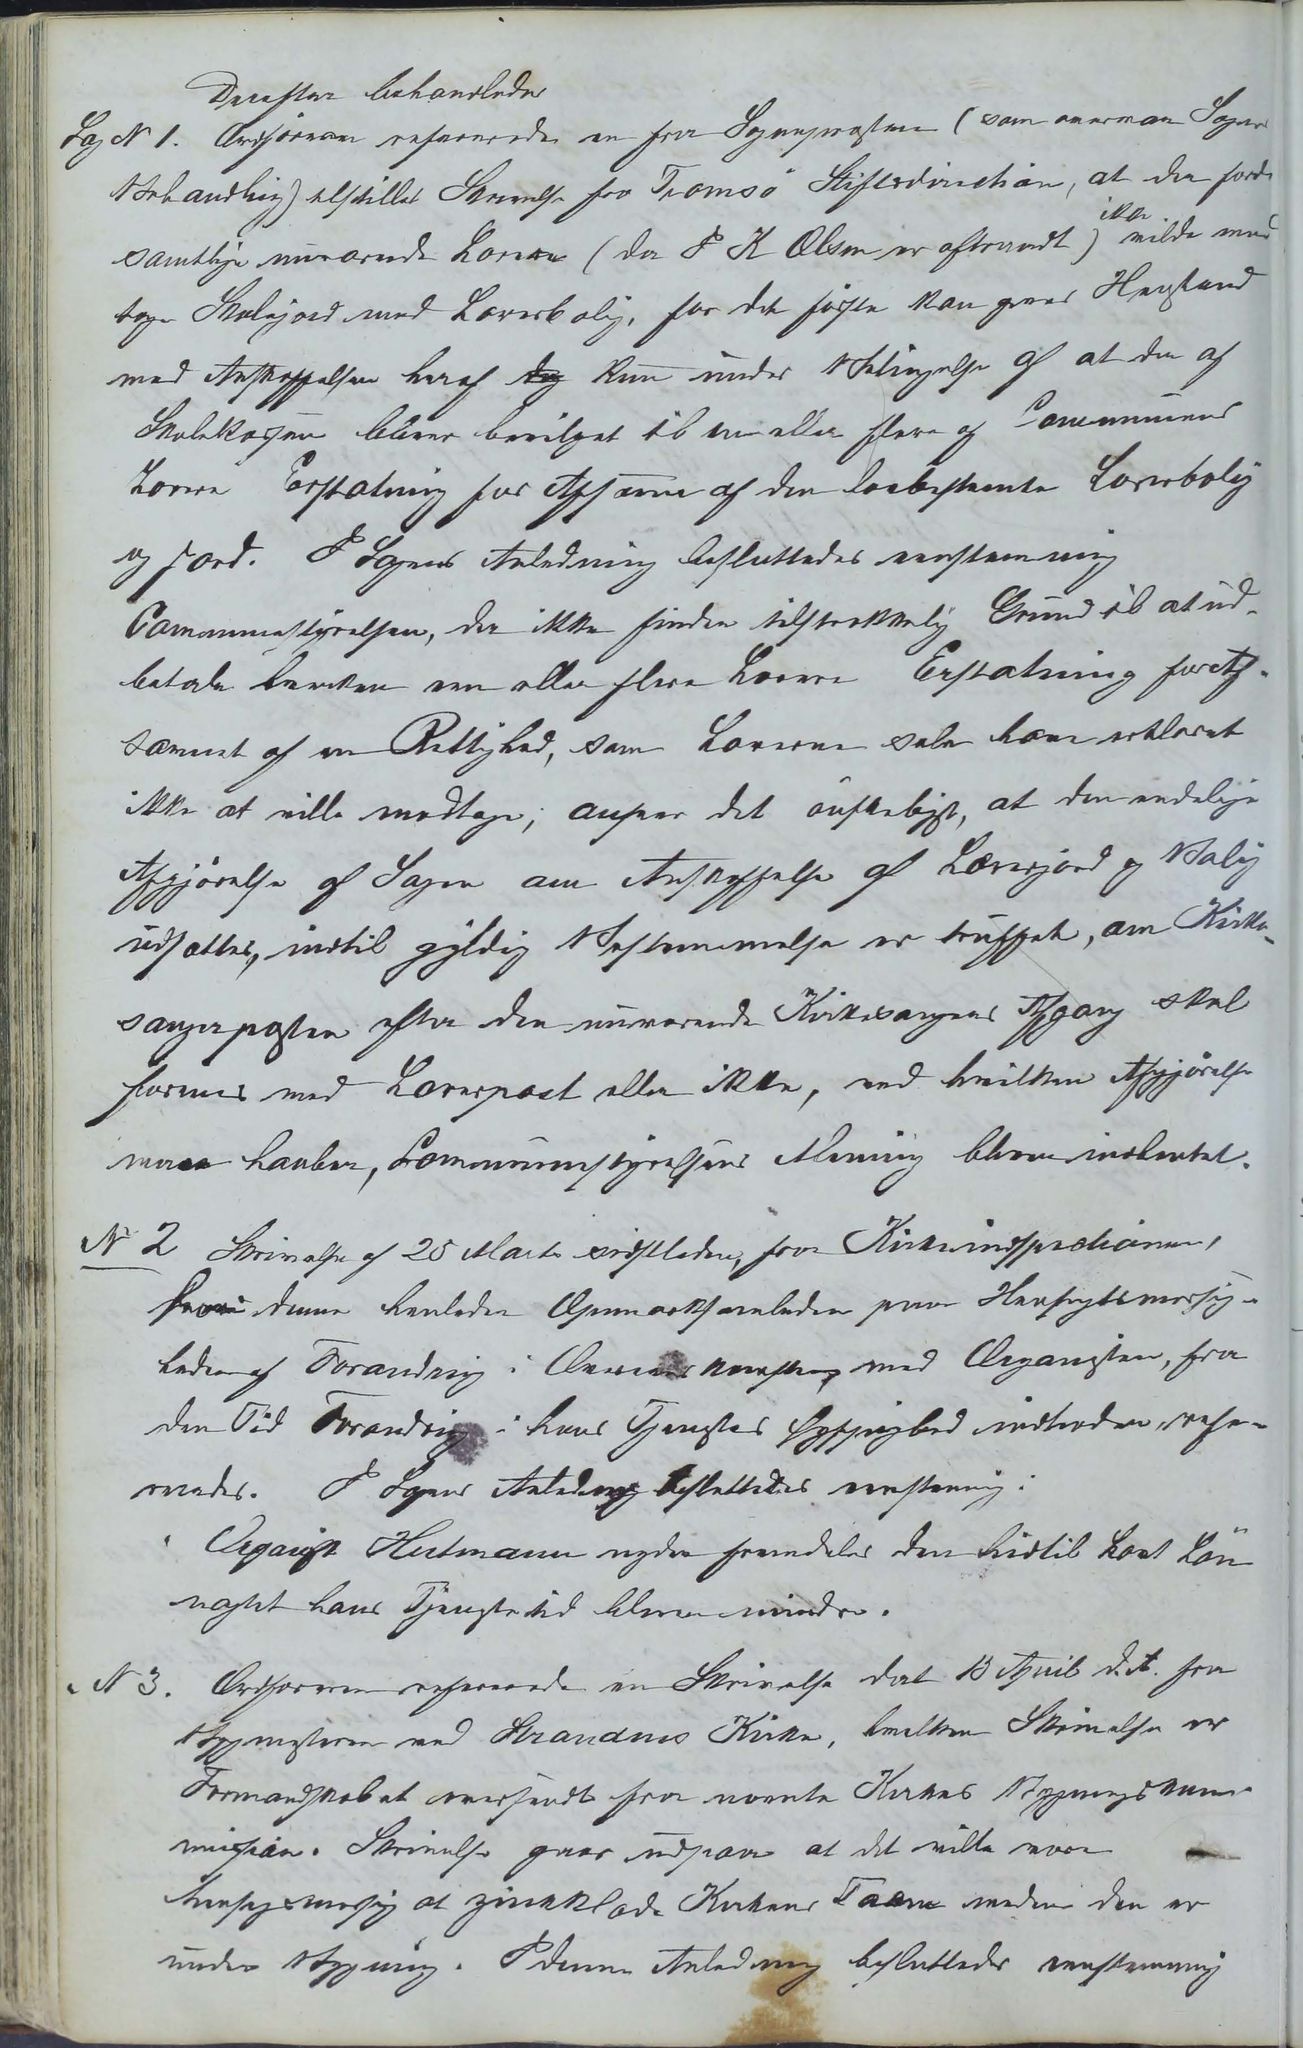 Derefter behandledes
Sag N 1. Ordföreren refererede en fra Sogneprästen (som anmoder Sagens
Behandling) tilstillet Skrivelse fra Tromsö Stiftsdirection, at den fordi
samtlige nuværende Lærere (da P K Olsen er aftraadt) ikke vilde mod
tage Skolejord med Lærerbolig, for det förste kan gives Henstand
med Anskaffelsen heraf dog kun under Betingelse af at der af
Skolekassen bliver bevilget til en eller flere af Communens
Lærere Erstatning for Afsavn af den lovbestemte Lærerbolig
og Jord. I Sagens Anledning besluttedes eenstemmig
Communestyrelsen, der ikke finder tilstrækkelig Grund til at ud-
betale hverken een eller flere Lærere Erstatning for Af-
savnet af en Rettighed, som Lærerne selv have erklæret
ikke at ville modtage; anser det önskeligst, at den endelige
Afgjörelse af Sagen om Anskaffelse af Lærerjord og Bolig
udsættes, indtil gyldig Bestemmelse er truffet, om Kirke-
sangerposten efter den nuværende Kirkesangers Afgang skal
forenes med Lærerpost eller ikke, ved hvilken Afgjörelse
man haaber, Communestyrelsens Mening bliver indhentet.
N 2 Skrivelse af 25 Marts sidstleden, fra Kirkeinspectionen,
hvori denne henleder Opmærksomheden paa Hensigtsmæssig-
heden af Forandring i Overenskomsten med Organisten, fra
den Tid Forandring i hans Tjenestes Hyppighed indtræder, refe-
reredes. I Sagens Anledning besluttedes eenstemmig:
Organist Hutmann nyder fremdeles den hidtil havt Lön
uagtet hans Tjenestetid bliver mindre.
N 3. Ordföreren refererede en Skrivelse dat 13 April d.A. fra
Bygmesteren ved Strandnes Kirke, hvilken Skrivelse er
Formandskabet oversendt fra nævnte Kirkes Bygningskom-
mission. Skrivelse gaar ud paa at det ville være
hensigtsmæssig at zinkklæde Kirkens Taarn medens den er
under Bygning. I denne Anledning besluttedes eenstemmig